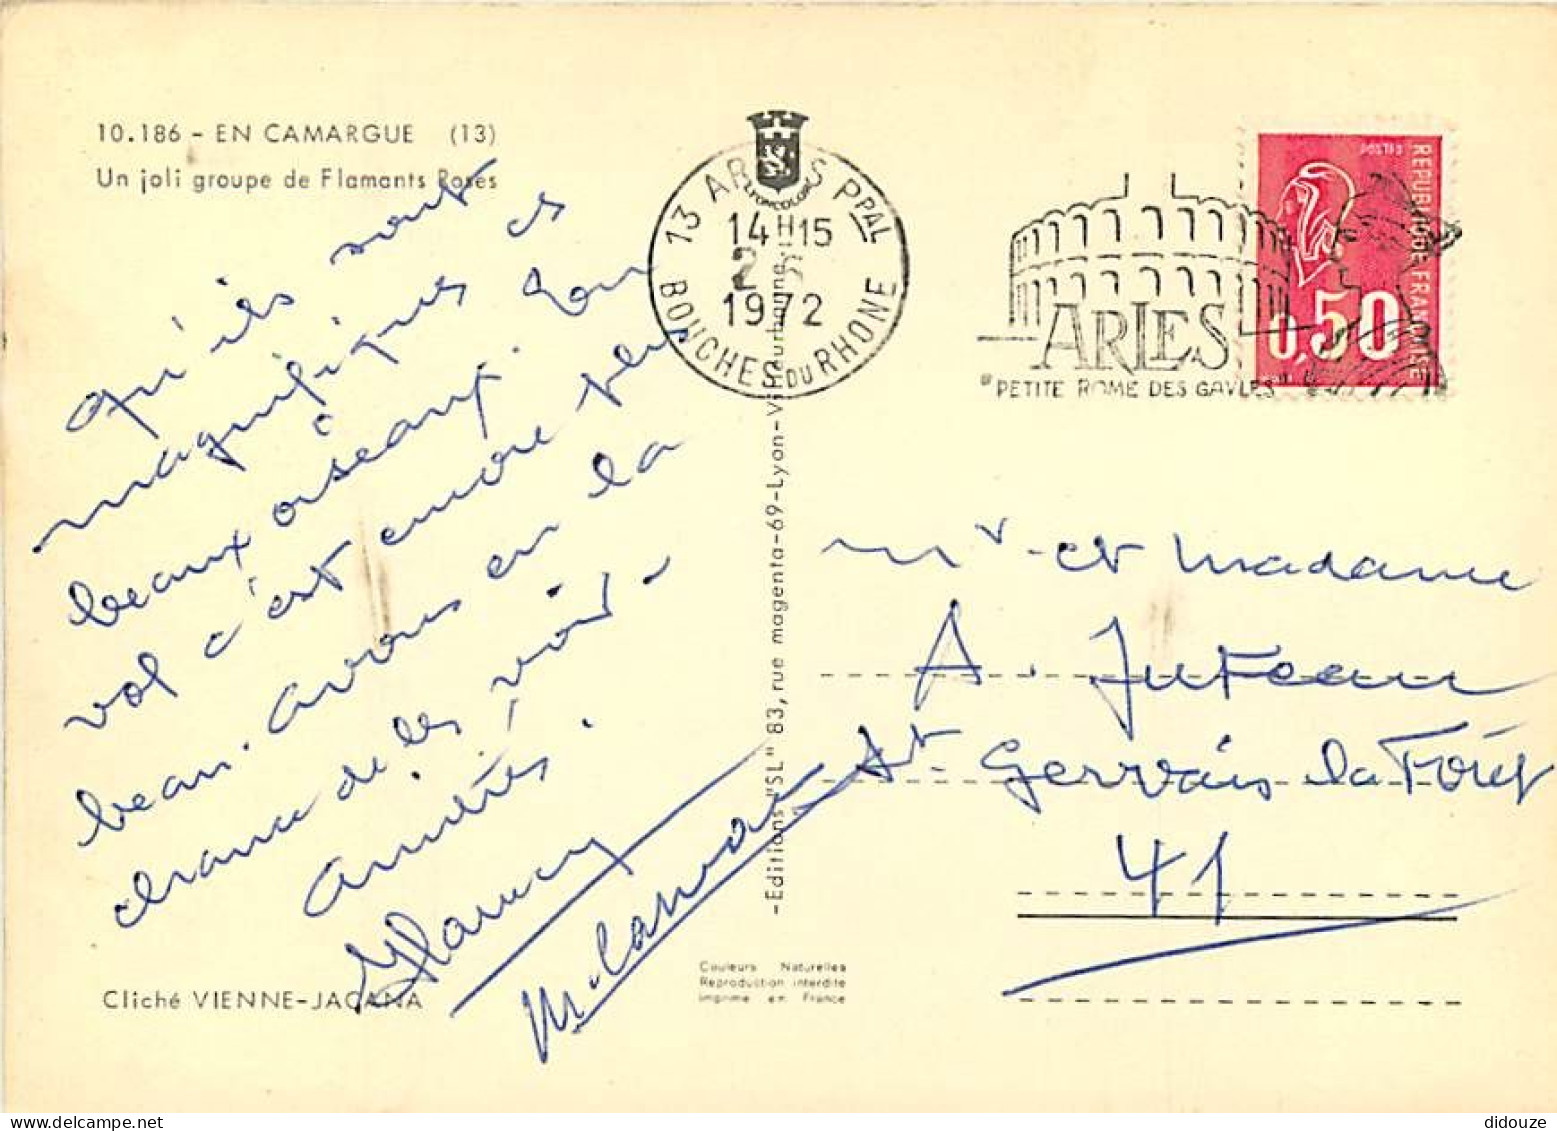 10.186 - EN CAMARGUE (13)
Un joli groupe de Flamants Roses
qu'ils sont
magnifiques ces
beaux oiseaux. Leur
vol c'est encore plus
beau. avons eu la
chance de les voir.
Amitiés.
Cliché VIENNE-JACANA
LYONCOLOR
13 ARLES PPAL
14H15
2
1972
BOUCHES DU RHONE
ARLES
"PETITE ROME DES GAULES"
POSTES
REPUBLIQUE FRANÇAISE
0,50
-Editions "SL" 83, rue magenta-69-Lyon-Villeurbanne
Couleurs Naturelles
Reproduction interdite
Imprimé en France
Mr et Madame
A. Juteau
St Gervais la Forêt
41
didouze